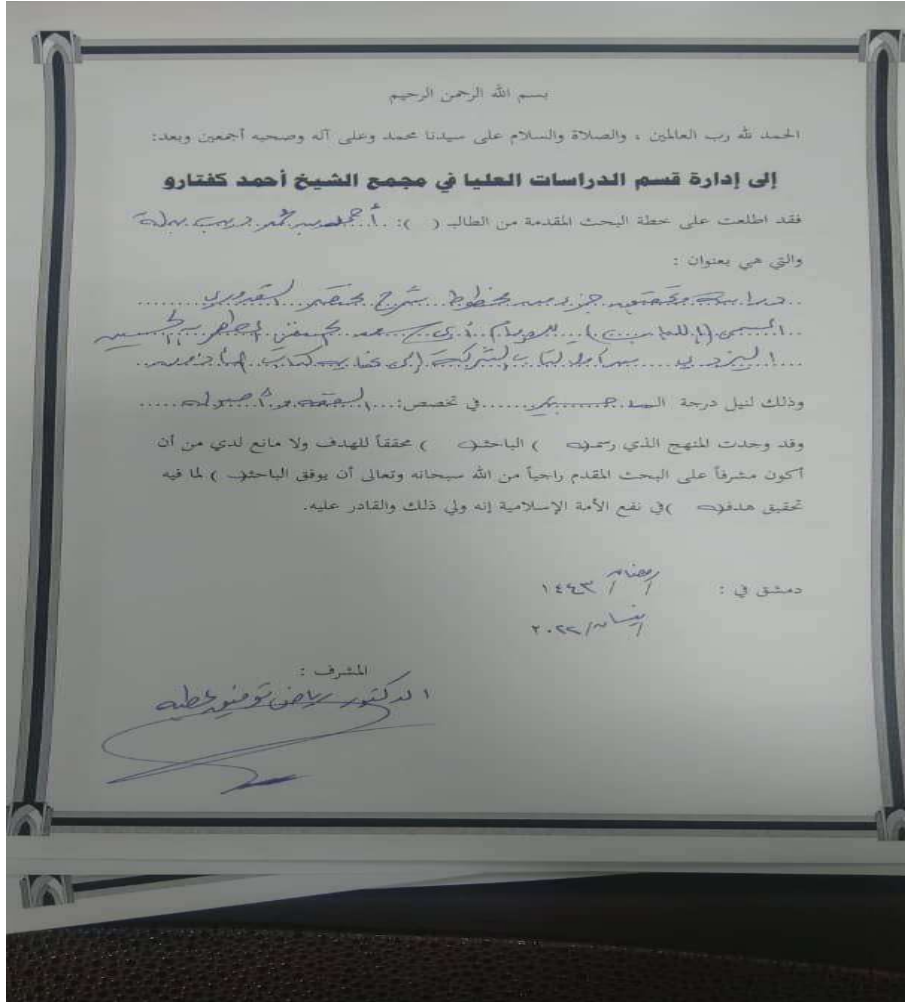 بسم الله الرحمن الرحيم
الحمد لله رب العالمين ، والصلاة والسلام على سيدنا محمد وعلى آله وصحبه أجمعين وبعد:
إلى إدارة قسم الدراسات العليا في مجمع الشيخ أحمد كفتارو
فقد اطلعت على خطة البحث المقدمة من الطالب ( ): أحمد محمد ديب
والتي هي بعنوان :
دراسة وتحقيق جزء من مخطوط شرح مختصر القدوري
المسمى (اللباب) للإمام أبي سعد المطهر بن الحسين
اليزدي من أول كتاب الشركة إلى كتاب
وذلك لنيل درجة الماجستير في تخصص: الفقه وأصوله
وقد وجدت المنهج الذي رسمه ) الباحث ) محققاً للهدف ولا مانع لدي من أن
أكون مشرفاً على البحث المقدم راجياً من الله سبحانه وتعالى أن يوفق الباحث ) لما فيه
تحقيق هدفه )في نفع الأمة الإسلامية إنه ولي ذلك والقادر عليه.
دمشق في : / رمضان / ١٤٤٣
/ نيسان / ٢٠٢٢
المشرف :
الدكتور رياض توفيق عطيه